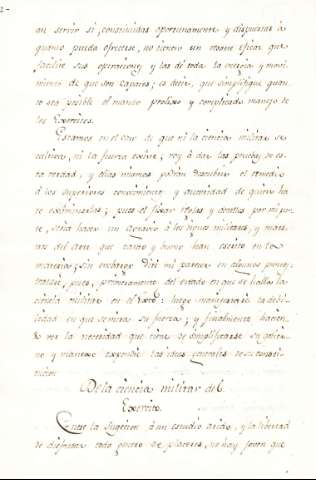 2-
an servir si, constituidas oportunamente y dispuestas à
quanto pueda ofrecerse, no tienen un eficaz que
facilite sus operaciones y las dé toda la y movi-
miento de que son capaces; es decir, que simplifique quan-
to sea posible el manto prolixo y complicado manejo de
los Exercitos.
Estamos en el caso de que ni la ciencia militar se
cultiva, ni la fuerza existe; voy à dar las pruebas de es-
ta verdad, y ellas mismas podrán descubrir el remedio
à los superiores conocimientos y autoridad de quien ha
de examinarlas; pues el fixar reglas y por mi par-
te, seria hacer un agravio à los militares, y maes-
tros del arte que tanto y bueno han escrito en la
materia; sin embargo diré mi parecer en algunos puntos,
trataré, pues, primeramente del estado en que se halla la
ciencia militar en el luego manifestaré la debi-
lidad en que se mira su fuerza; y finalmente haciendo
ver la necesidad que tiene de simplificarse su gobier-
no y manejo expondré las ideas generales de su constitu-
cion.
De la ciencia militar del
Exercito.
Entre la sugecion à un estudio arido, y la libertad
de disfrutar todo genero de placeres, no hay joven que